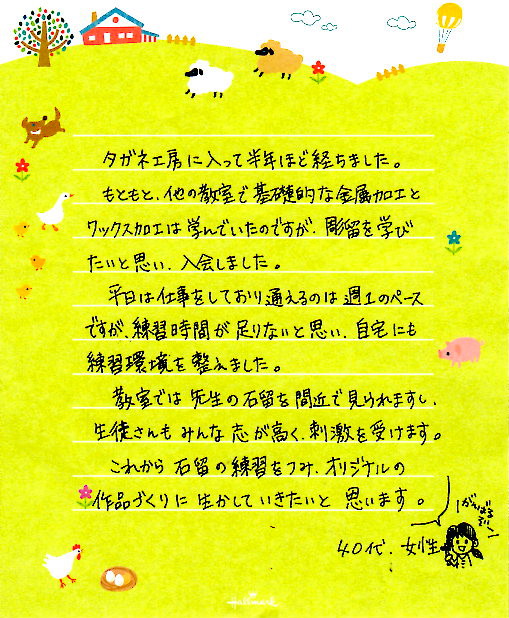 タガネ工房に入って半年ほど経ちました。
もともと、他の教室で基礎的な金属加工と
ワックス加工は学んでいたのですが、彫留を学び
たいと思い、入会しました。
平日は仕事をしており通えるのは週1のペース
ですが、練習時間が足りないと思い、自宅にも
練習環境を整えました。
教室では先生の石留を間近で見られますし、
生徒さんもみんな志が高く、刺激を受けます。
これから石留の練習をつみ、オリジナルの
作品づくりに生かしていきたいと思います。
がんばる
ぞー
40代、女性
Hallmark